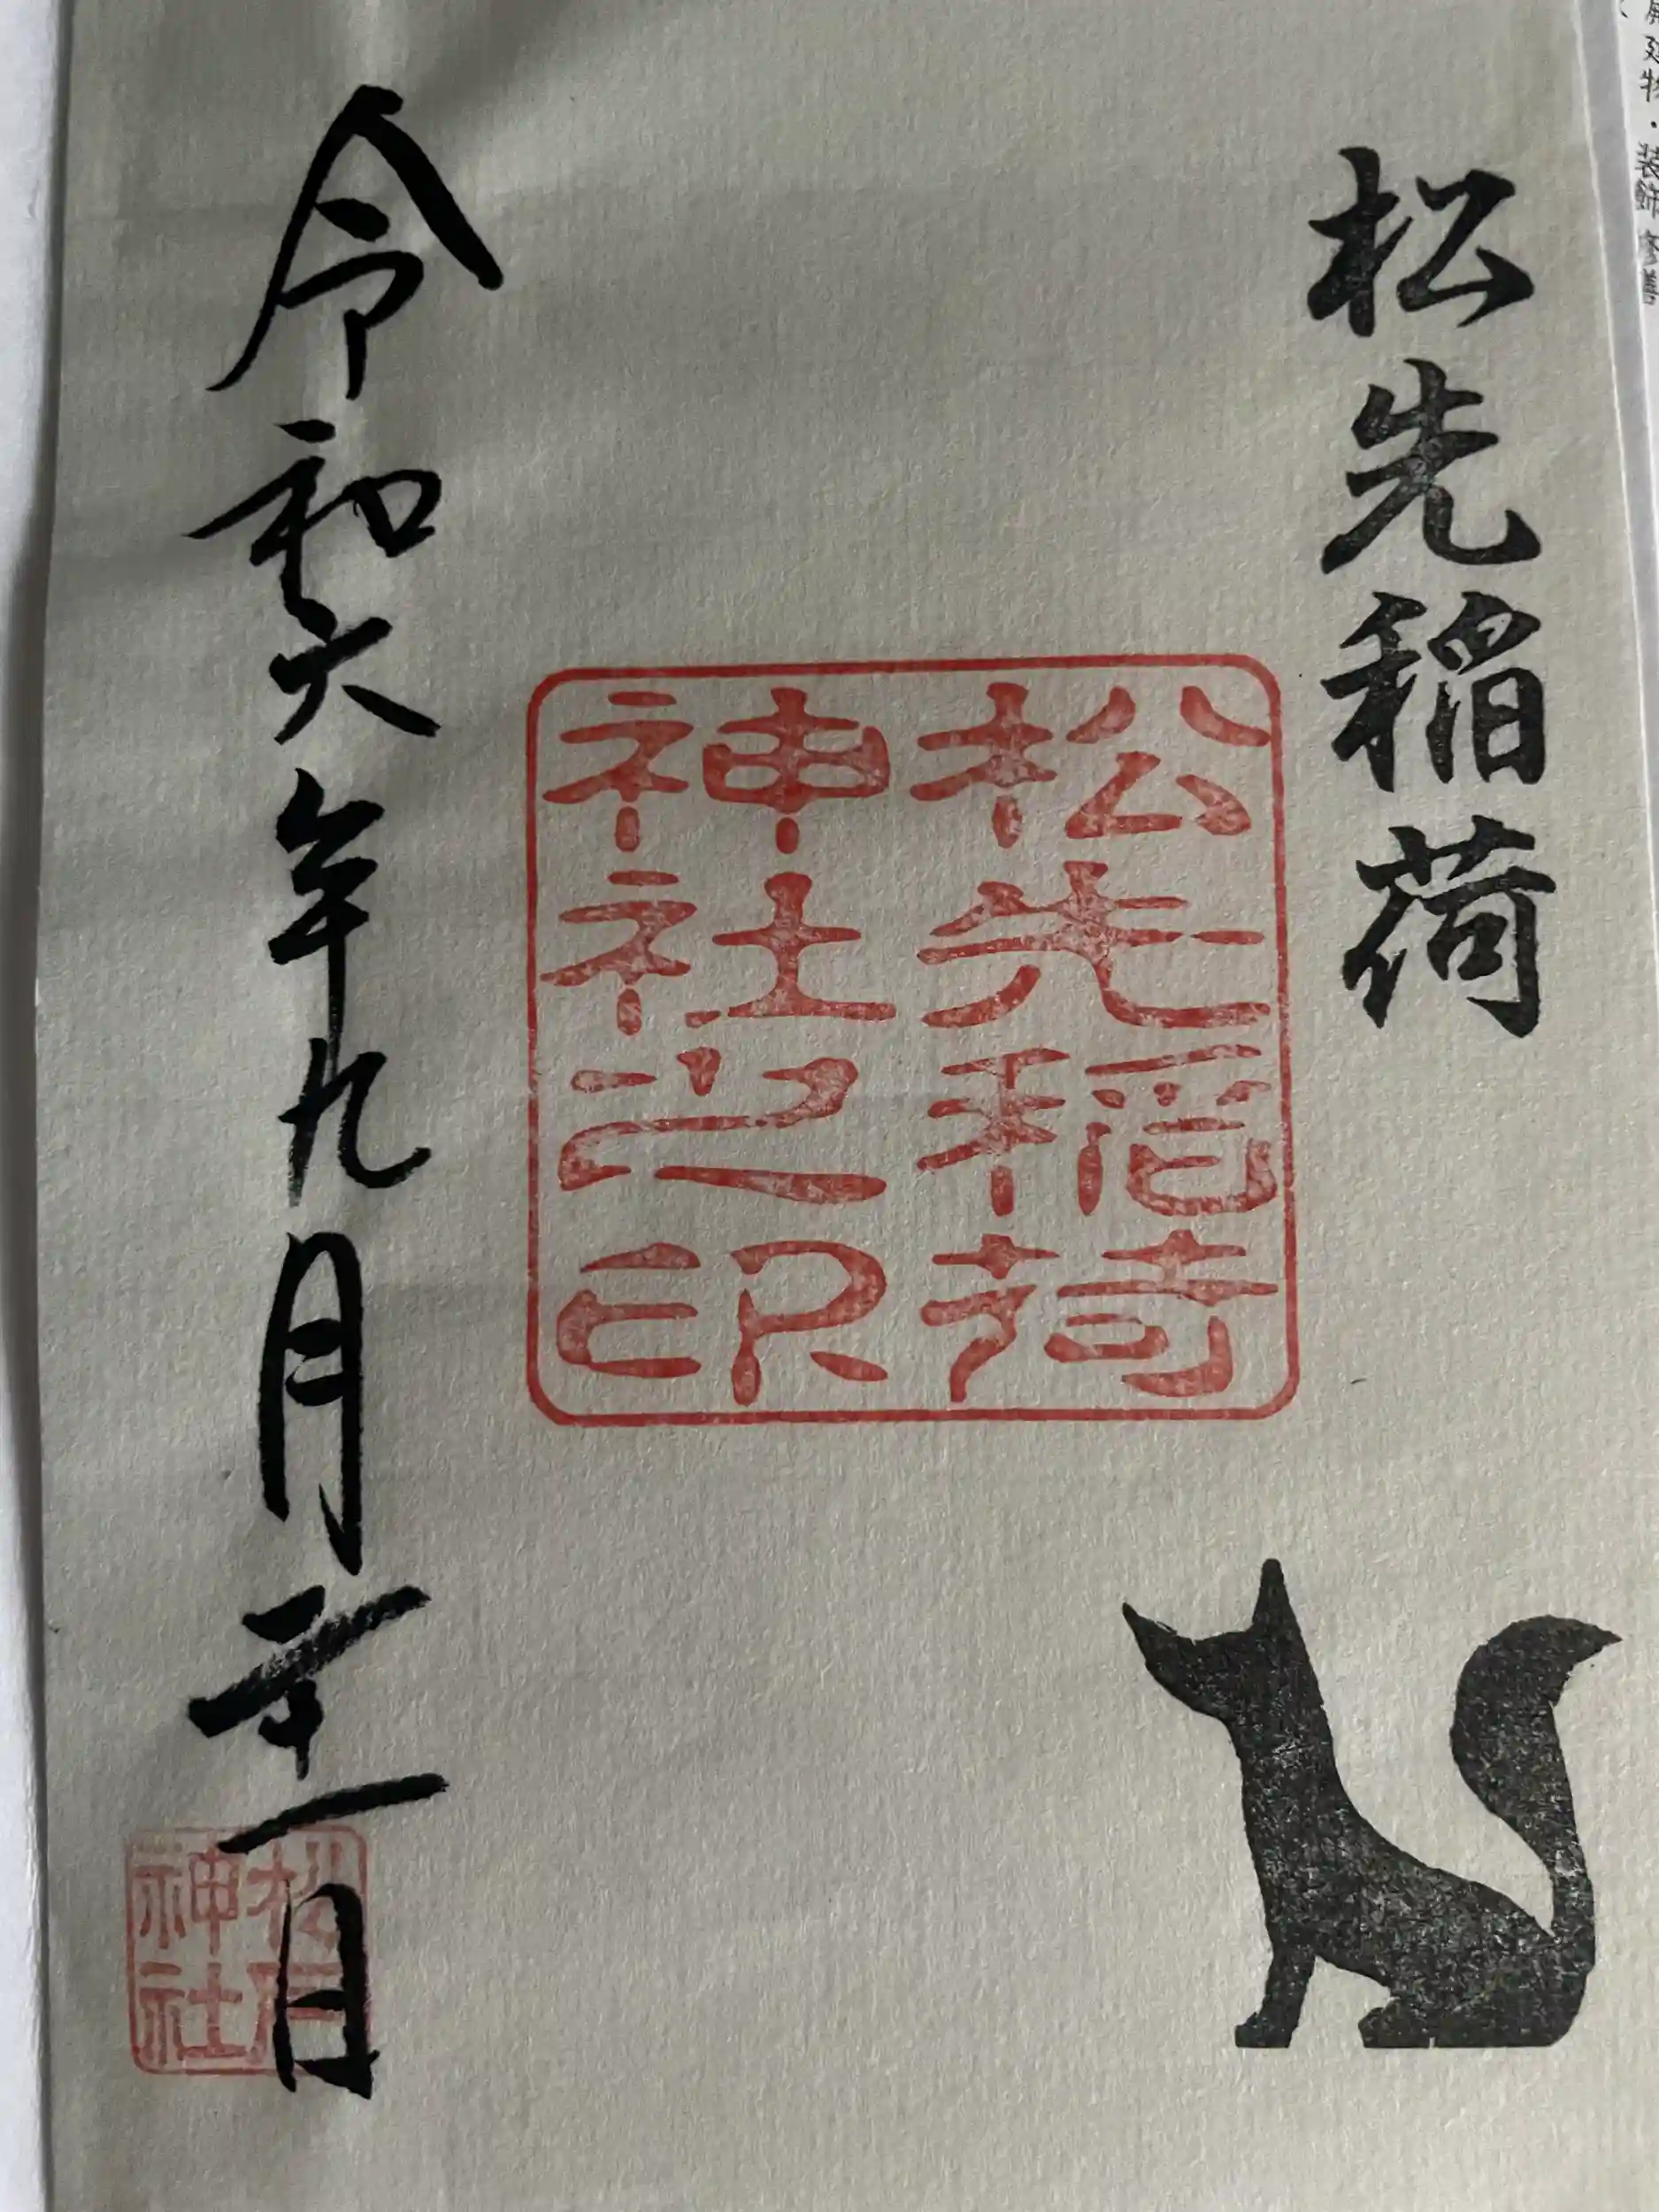 建物・装飾修善
松先稲荷
松先稲荷
神社之印
令和六年九月二十一日
松戸
神社